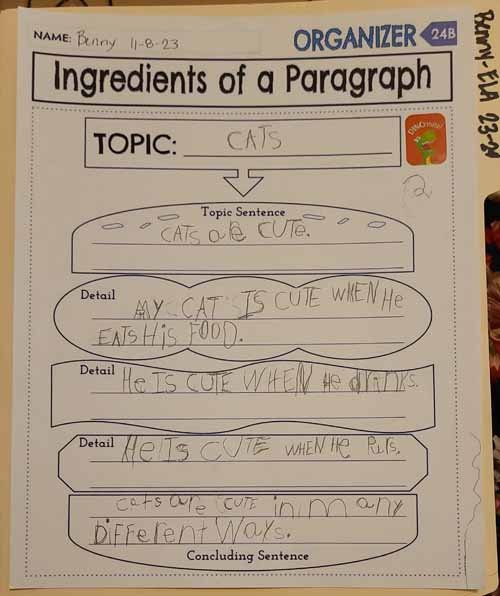 NAME: Benny 11-8-23
ORGANIZER 24B
Ingredients of a Paragraph
TOPIC: CATS
Topic Sentence
CATS are CUTE.
Detail
MY CAT IS CUTE WHEN He
EATS His FOOD.
Detail
He IS CUTE WHEN He drinks.
Detail
He Is CUTE WHEN He Purs.
cats are CUTE in many
DiFFerent Ways.
Concluding Sentence
2
Benny-ELA 23-24